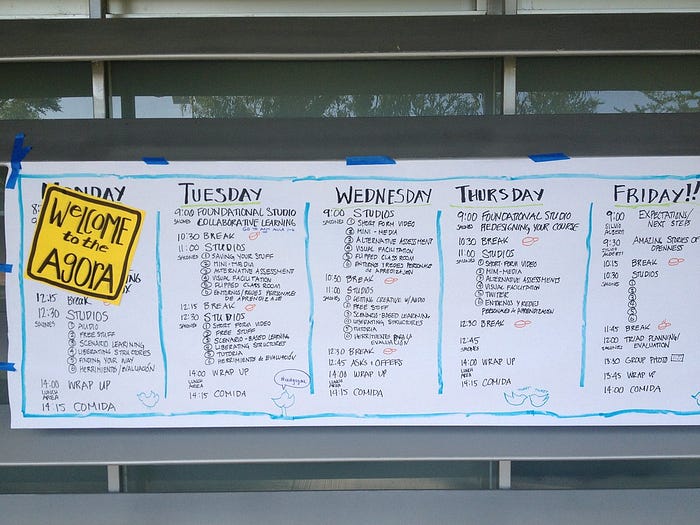 MONDAY
8:
WELCOME
to the
AGORA
12:15 Break
12:30 STUDIOS
SALONES
① AUDIO
② FREE STUFF
③ SCENARIO LEARNING
④ LIBERATING STRUCTURES
⑤ FINDING YOUR WAY
⑥ HERRMIENTO/EVALUACIÓN
14:00 WRAP UP
LUNCH AREA
14:15 COMIDA
TUESDAY
9:00 FOUNDATIONAL STUDIO
SALONES COLLABORATIVE LEARNING
10:30 BREAK
11:00 STUDIOS
SALONES
① SAVING YOUR STUFF
② MINI-MEDIA
③ ALTERNATIVE ASSESSMENT
④ VISUAL FACILITATION
⑤ FLIPPED CLASS ROOM
⑥ ENTORNOS/REDES PERSONALES
DE APRENDIZAJE
12:15 BREAK
12:30 STUDIOS
SALONES
① SHORT FORM VIDEO
② FREE STUFF
③ SCENARIO-BASED LEARNING
④ LIBERATING STRUCTURES
⑤ TUTORIA
⑥ HERRMIENTES DE EVALUACIÓN
14:00 WRAP UP
LUNCH AREA
14:15 COMIDA
WEDNESDAY
9:00 STUDIOS
SALONES
① SHORT FORM VIDEO
② MINI-MEDIA
③ ALTERNATIVE ASSESSMENT
④ VISUAL FACILITATION
⑤ FLIPPED CLASS ROOM
⑥ ENTORNOS/REDES PERSONALES
DE APRENDIZAJE
10:30 BREAK
11:00 STUDIOS
SALONES
① GETTING CREATIVE W/AUDIO
② FREE STUFF
③ SCENARIO-BASED LEARNING
④ LIBERATING STRUCTURES
⑤ TUTORIA
⑥ HERRMIENTES PARA LA
EVALUACIÓN
12:30 BREAK
12:45 ASKS + OFFERS
14:00 WRAP UP
LUNCH AREA
14:15 COMIDA
THURSDAY
9:00 FOUNDATIONAL STUDIO
SALONES REDESIGNING YOUR COURSE
10:30 BREAK
11:00 STUDIOS
SALONES
① SHORT-FORM VIDEO
② MINI-MEDIA
③ ALTERNATIVE ASSESSMENTS
④ VISUAL FACILITATION
⑤ TWITTER
⑥ ENTORNOS Y REDES
PERSONALES DE APRENDIZAJE
12:30 BREAK
12:45
SALONES
14:00 WRAP UP
LUNCH AREA
14:15 COMIDA
FRIDAY!!
9:00 EXPECTATIONS/
NEXT STEPS
SILVIO
ALBERTI
9:30 AMAZING STORIES OF
OPENNESS
10:15 BREAK
10:30 STUDIOS
SALONES
①
②
③
④
⑤
⑥
11:45 BREAK
12:00 TRIAD PLANNING/
EVALUATION
13:30 GROUP PHOTO
13:45 WRAP UP
14:00 COMIDA